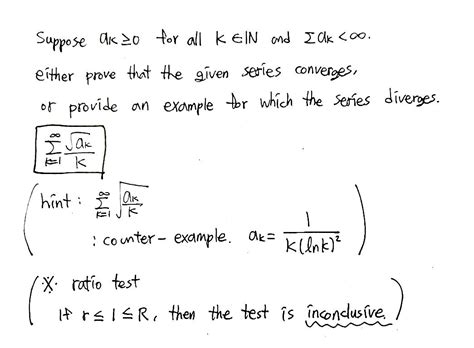 Suppose aₖ ≥ 0 for all k ∈ ℕ and Σaₖ < ∞.
either prove that the given series converges,
or provide an example for which the series diverges.
∞ Σ k=1 √aₖ / k
(hint : ∞ Σ k=1 √(aₖ / k)
: counter-example. aₖ = 1 / k(ln k)²)
(※. ratio test
If r ≤ 1 ≤ R, then the test is inconclusive.)